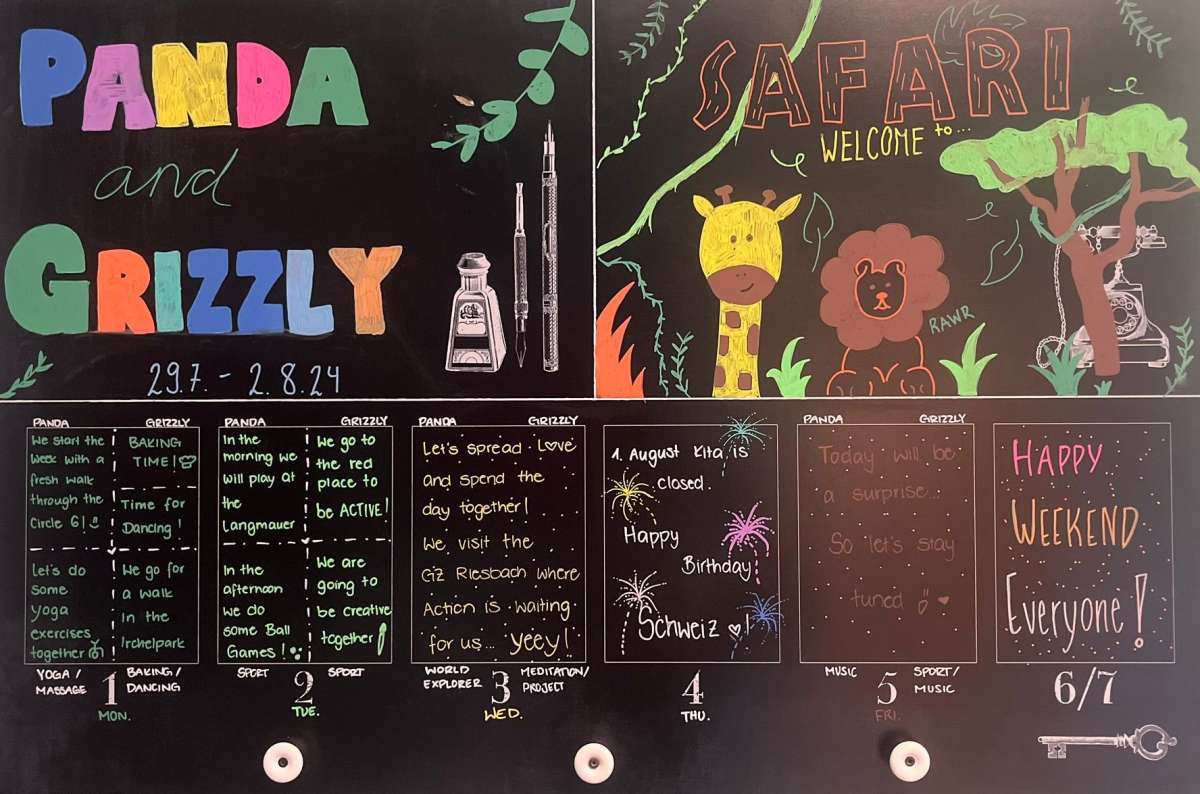 PANDA
and
GRIZZLY
29.7. - 2.8.24
SAFARI
WELCOME to...
RAWR
PANDA GRIZZLY
We start the
week with a
fresh walk
through the
Circle 6!
Let's do
some
yoga
exercises
together
BAKING
TIME!
Time for
Dancing!
We go for
a walk
in the
Irchelpark
YOGA /
MASSAGE
BAKING/
DANCING
1
MON.
PANDA GRIZZLY
In the
morning we
will play at
the
Langmauer
In the
afternoon
we do
some Ball
Games!
We go to
the red
place to
be ACTIVE!
We are
going to
be creative
together
SPORT
SPORT
2
TUE.
PANDA GRIZZLY
Let's spread Love
and spend the
day together!
We visit the
GZ Riesbach where
Action is waiting
for us... yeey!
WORLD
EXPLORER
MEDITATION/
PROJECT
3
WED.
1. August Kita is
closed.
Happy
Birthday
Schweiz !
4
THU.
PANDA GRIZZLY
Today will be
a surprise...
So let's stay
tuned
MUSIC
SPORT/
MUSIC
5
FRI.
HAPPY
WEEKEND
Everyone!
6/7